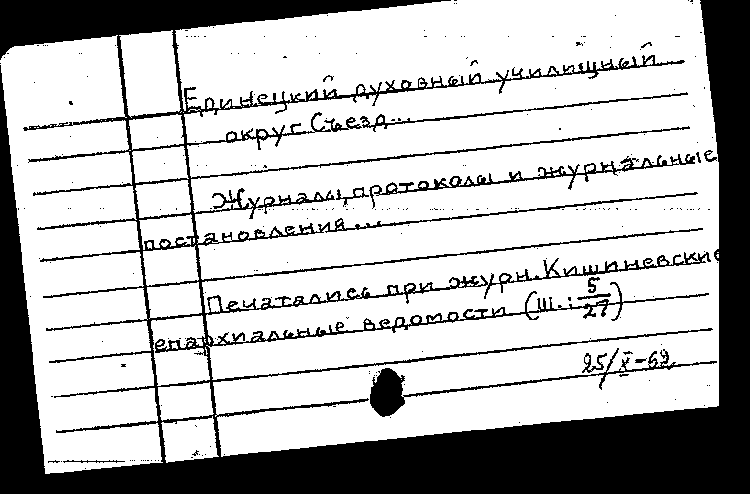 Единецкий духовный училищный
округ. Съезд...
Журналы, протоколы и журнальные
постановления...
Печатались при журн. Кишиневские
епархиальные ведомости (Ш.: 5/27)
25/X-62